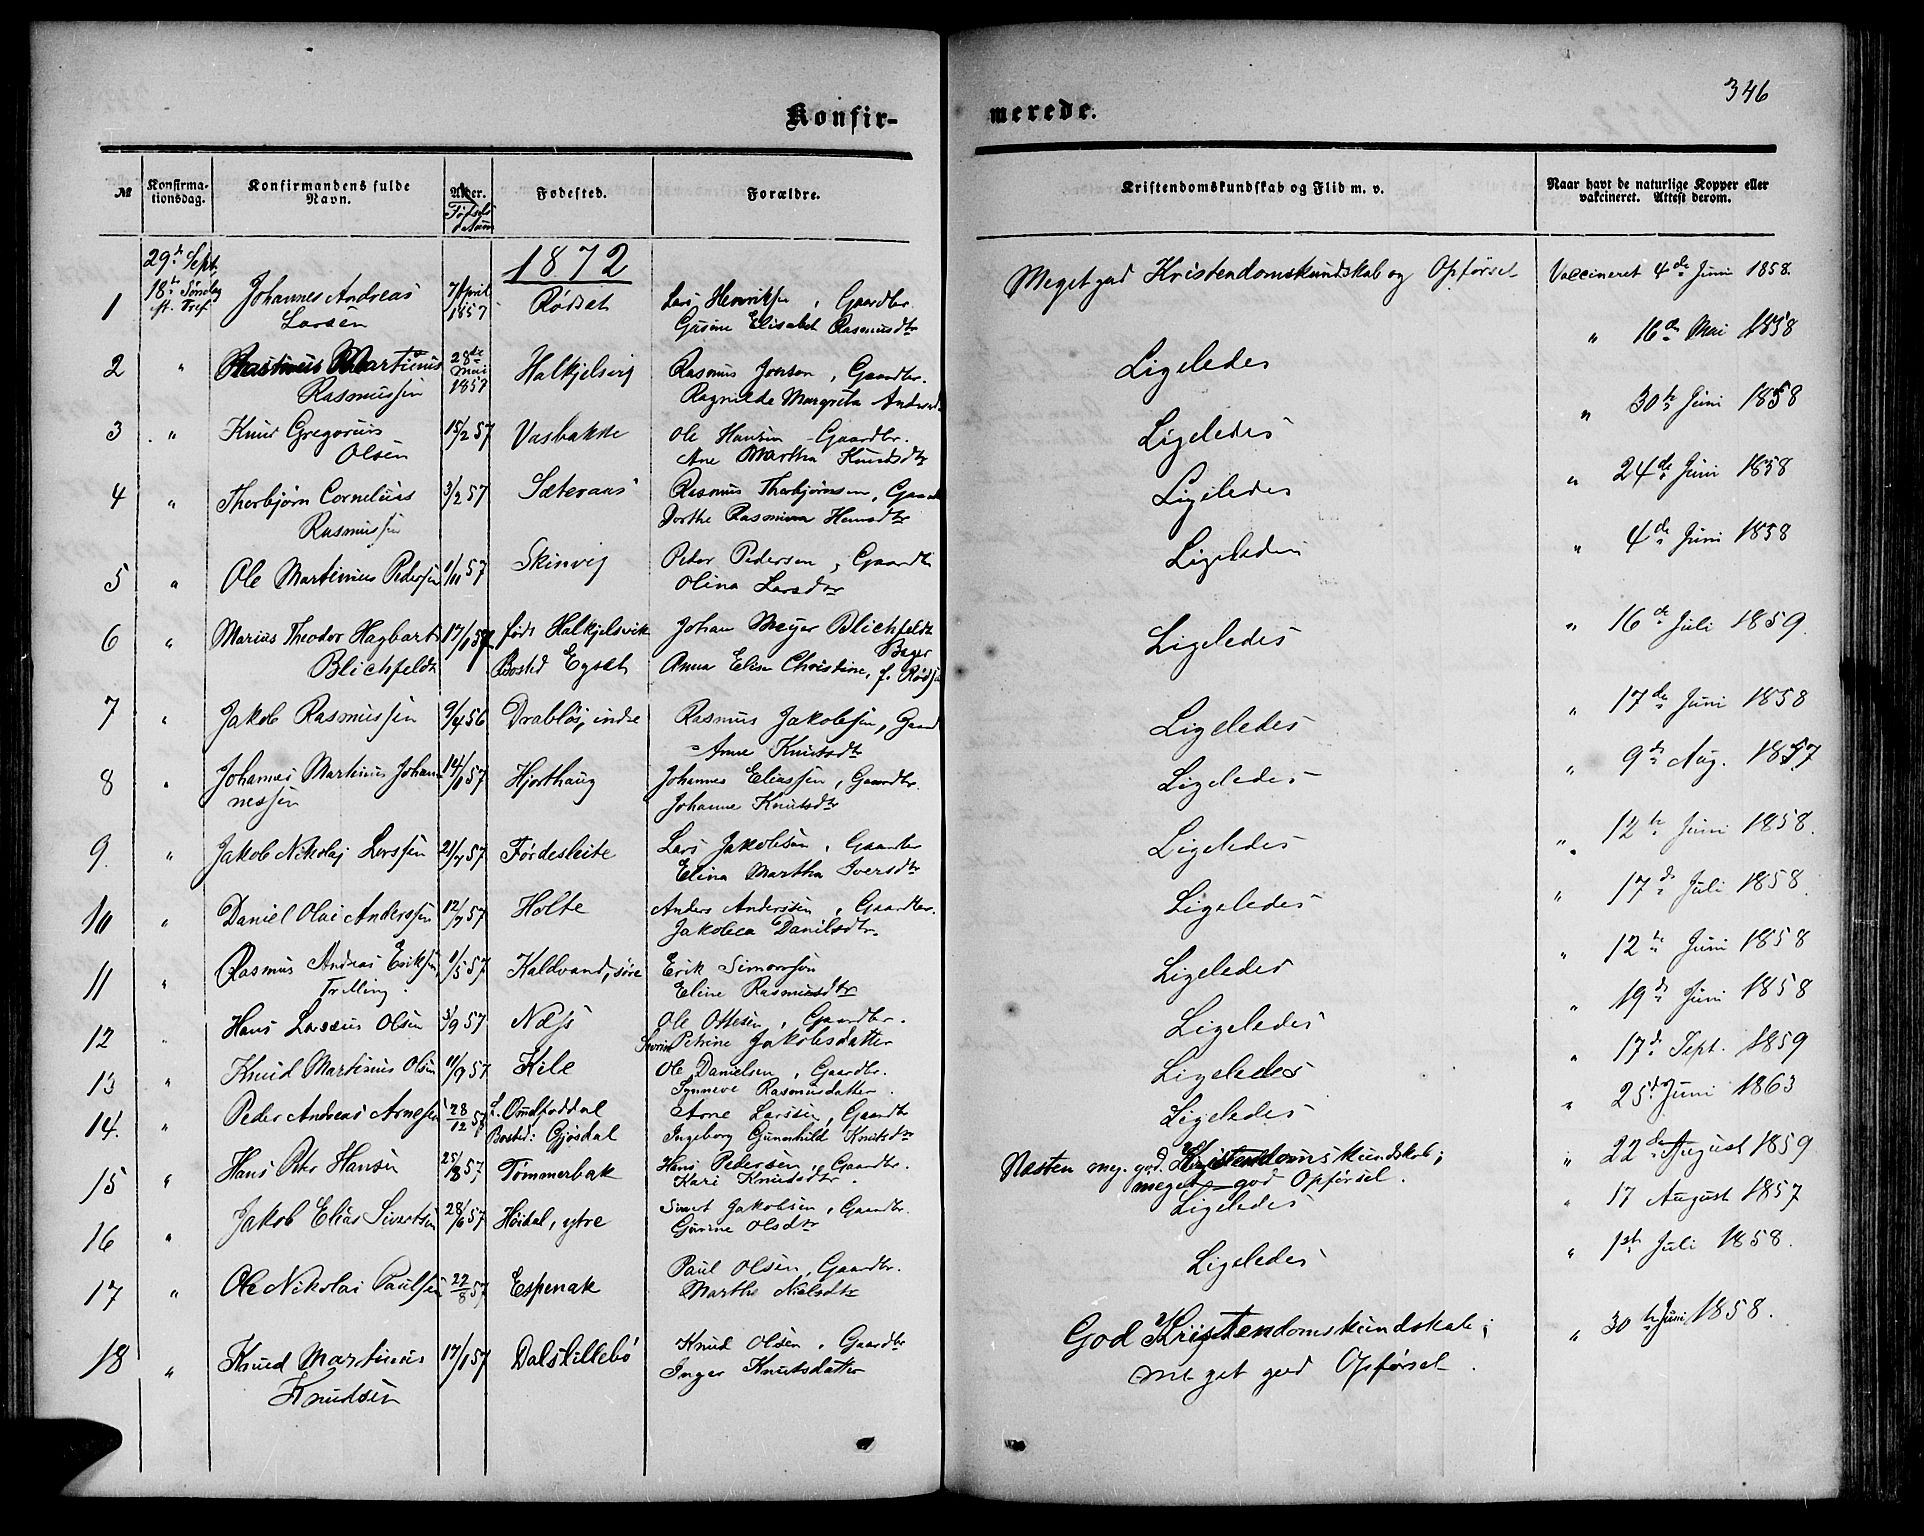 346
Konfir-
merede.
№
Konfirma-
tionsdag.
Konfirmandens fulde
Navn.
Alder.
Fødsels
datum
Fødested.
Forældre.
Kristendomskundskab og Flid m. v.
Naar havt de naturlige Kopper eller
vakcineret. Attest derom.
1872
29de Sept.
18de Søndag
eft. Tref.
1 Johannes Andreas 7 April Rødset Lars Henriksen, Gaardbr. Meget god Kristendomskundskab og Opførsel Vaccineret 4de Juni 1858.
Larsen 1857 Gusine Elisabet Rasmusdtr
2 " Rasmus Martinus 28de Mai 1857 Halkjelsvig Rasmus Jonsen, Gaardbr. Ligeledes " 16de Mai 1858
Rasmussen Ragnilde Margrete
3 " Knud Gregorius 15/2 57 Vasbakke Ole Hansen Gaardbr. Ligeledes " 30te Juni 1858
Olsen Ane Martha Knudsdtr
4 " Thorbjørn Cornelius 3/2 57 Sæteraas Rasmus Thorbjørnsen, Ligeledes " 24de Juni 1858
Rasmussen Dorthe Rasmina Hansdtr
5 " Ole Martinius Pedersen 1/11 57 Skinvig Peter Pedersen, Gaardb Ligeledes " 4de Juni 1858
Olina Larsdtr
6 " Marius Theodor Hagbart 17/1 57 Født Halkjelsvik Johan Meyer Blichfeldt Ligeledes " 16de Juli 1859.
Blichfeldt Bosted Egset Bager
Anna Elise Christine, f.
7 " Jakob Rasmussen 9/4 56 Drabløs, indre Rasmus Jakobsen, Gaard Ligeledes " 17de Juni 1858
Anne Knutsdtr
8 " Johannes Martinus Johan- 14/1 57 Hjorthaug Johannes Eliassen, Gaardbr. Ligeledes " 9de Aug. 1857
nessen Johanne Knutsdtr
9. " Jakob Nikolaj Larssen 21/7 57 Førdesleite Lars Jakobsen, Gaardbr Ligeledes " 12te Juni 1858.
Elina Martha Iversdtr
10 " Daniel Olai Anderssen 12/7 57 Holte Anders Andersen, Gaardbr. Ligeledes " 17de Juli 1858
Jakobea Danilsdtr.
11 " Rasmus Andreas Eriksen, 1/5 57 Kaldvand, søre Erik Simonsen Ligeledes " 12te Juni 1858
Trilling. Eline Rasmusdtr
12 " Hans Larseus Olsen 3/9 57 Næss Ole Ottesen, Gaardbr. Ligeledes " 19de Juni 1858
Petrine Jakobsdatter
13 " Knud Martinus Olsen 11/9 57 Hile Ole Danielsen, Gaardbr. Ligeledes " 17de Sept. 1859
Synneve Rasmusdatter
14. " Peder Andreas Arnesen 28/12 Arne Larsen, Gaardb Ligeledes " 25de Juni 1863
Bosted: Gjøsdal Ingeborg Gunnhild Knutsdtr
15 " Hans Peter Hansen 25/8 57 Tømmerbak Hans Pedersen, Gaardbr. Næsten meg. god Kristendomskundskab; " 22de August 1859
Kari Knudsdtr. meget god Opførsel.
16 " Jakob Elias Sivertsen 28/6 57 Høidal, ytre Sivert Jakobsen, Gaardbr. Ligeledes " 17 August 1857
Gurine Olsdtr
17 " Ole Nikolai Paulsen 22/8 57 Espenak Paul Olsen, Gaardbr. Ligeledes " 1st Juli 1858.
Marthe Nielsdtr
18 " Knud Martinus 17/1 57 Dalslillebø Knud Olsen, Gaardbr God Kristendomskundskab; " 30te Juni 1858.
Knudsen Inger Knutsdatter meget god Opførsel.